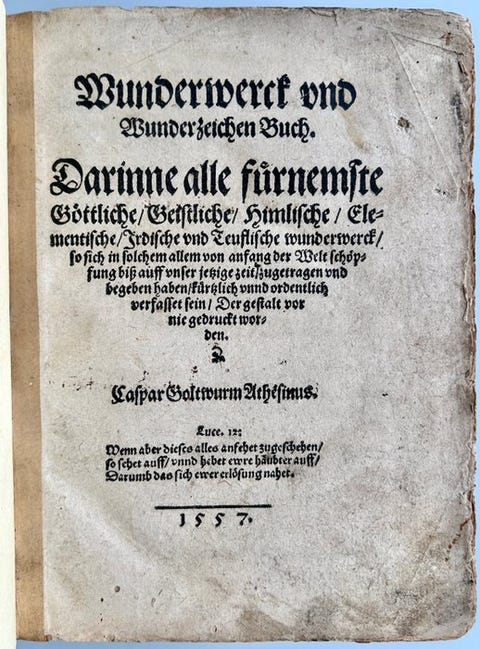 Wunderwerck vnd
Wunderzeichen Buch.
Darinne alle fürnemste
Göttliche/Geistliche/Himlische/Ele-
mentische/Irdische vnd Teuflische wunderwerck/
so sich in solchem allem von anfang der Welt schöp-
fung biß auff vnser jetzige zeit/zugetragen vnd
begeben haben/kürtzlich vnnd ordentlich
verfasset sein/Der gestalt vor
nie gedruckt wor-
den.
Caspar Goltwurm Athesinus.
Luce. 12:
Wenn aber dieses alles anfehet zugeschehen/
so sehet auff/vnnd hebet ewre häubter auff/
Darumb das sich ewer erlösung nahet.
1557.